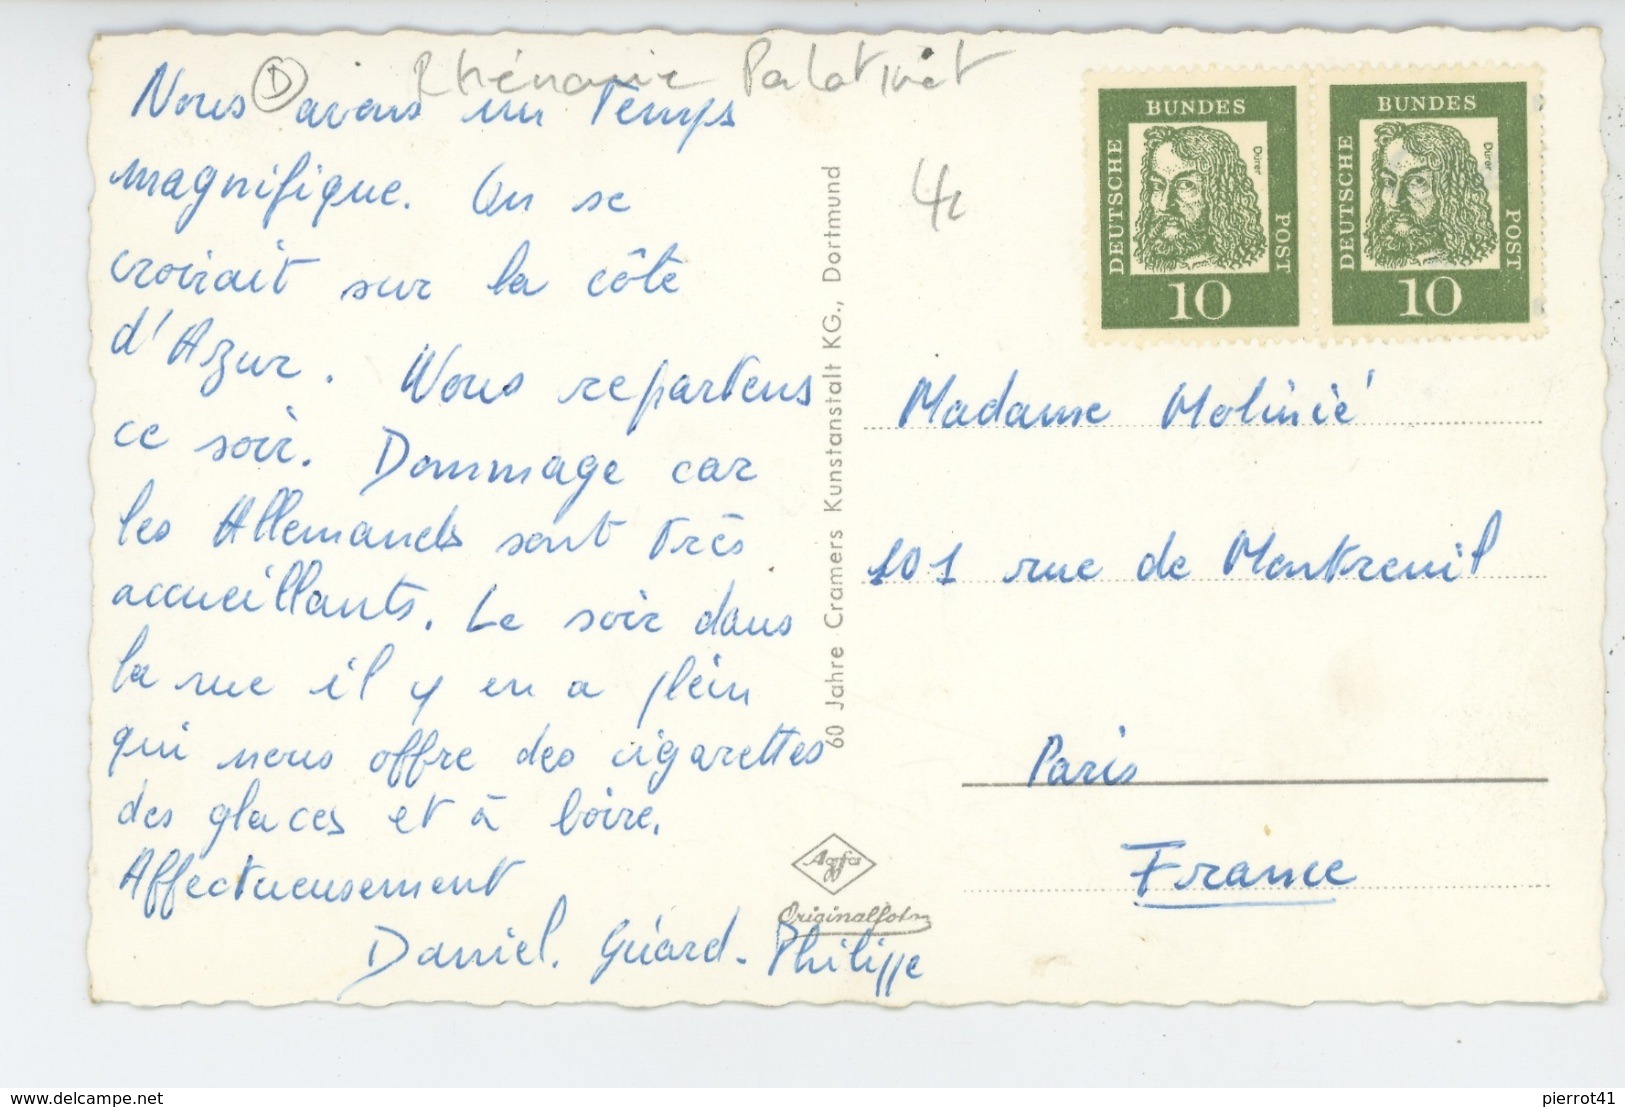 D Rhénanie Palatinat
Nous avons un temps
magnifique. On se
croirait sur la côte
d'Azur. Nous repartons
ce soir. Dommage car
les Allemands sont très
accueillants. Le soir dans
la rue il y en a plein
qui nous offre des cigarettes
des glaces et à boire.
Affectueusement
Daniel. Gérard - Philippe
60 Jahre Cramers Kunstanstalt KG., Dortmund
Agfa
Originalfoto
DEUTSCHE BUNDES POST
Dürer
10
DEUTSCHE BUNDES POST
Dürer
10
Madame Molinié
101 rue de Montreuil
Paris
France
www.delcampe.net
pierrot41